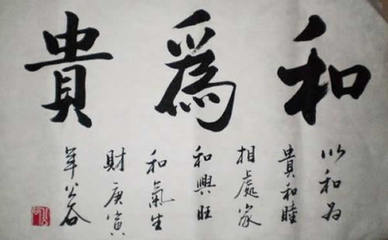 和爲貴
以和为
貴和睦
相處家
和興旺
和氣生
財庚寅
年